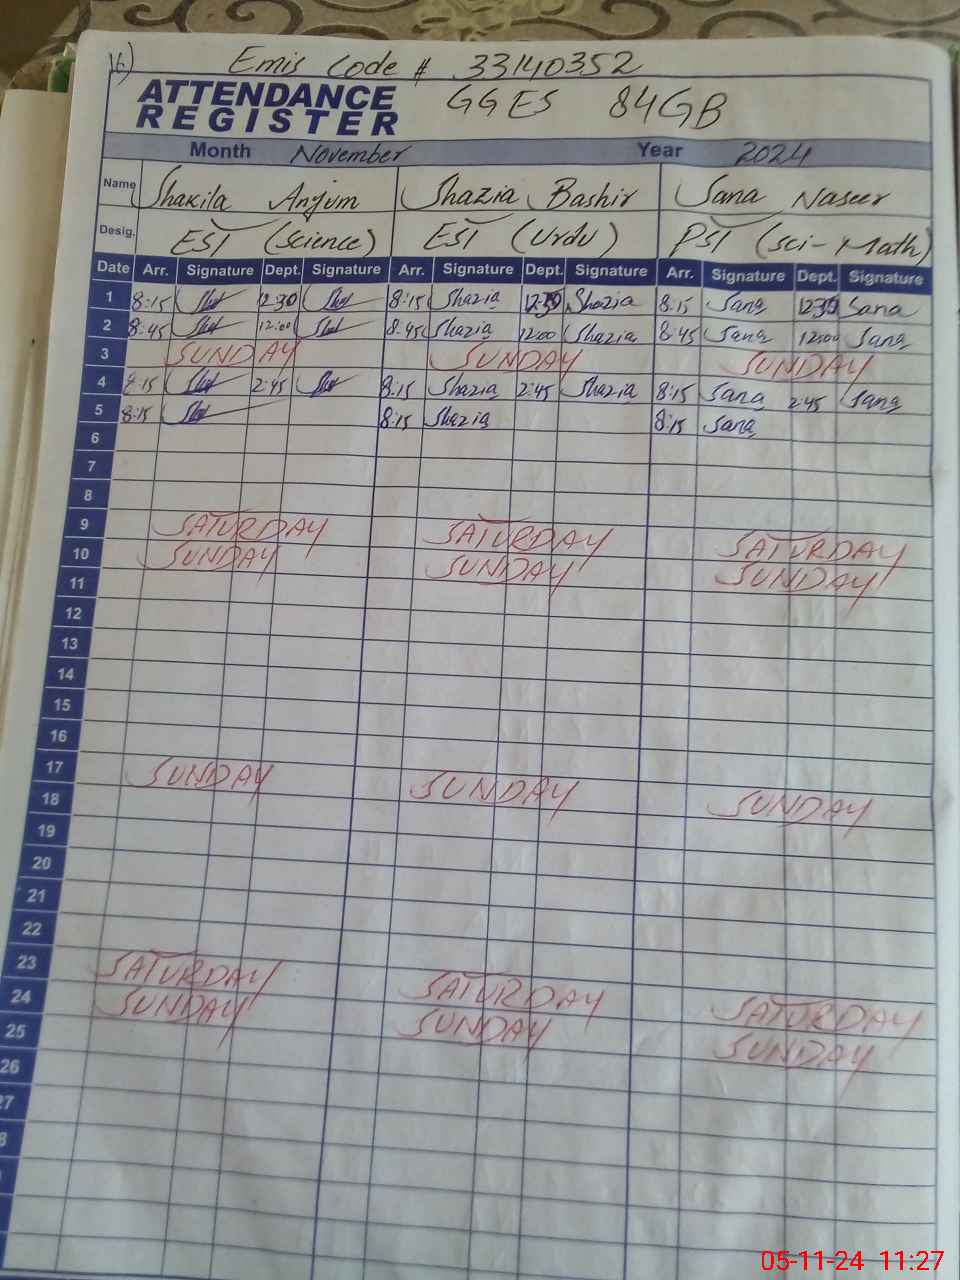 16)
Emis Code # 33140352
ATTENDANCE GGES 84GB
REGISTER
Month November Year 2024
Name Shakila Anjum Shazia Bashir Sana Naseer
Desig. EST (Science) EST (Urdu) PST (Sci-Math)
Date Arr. Signature Dept. Signature Arr. Signature Dept. Signature Arr. Signature Dept. Signature
1 8:15 12:30 8:15 Shazia 12:30 Shazia 8:15 Sana 12:30 Sana
2 8:45 12:00 8:45 Shazia 12:00 Shazia 8:45 Sana 12:00 Sana
3 SUNDAY SUNDAY SUNDAY
4 8:15 2:45 8:15 Shazia 2:45 Shazia 8:15 Sana 2:45 Sana
5 8:15 8:15 Shazia 8:15 Sana
6
7
8
9 SATURDAY SATURDAY SATURDAY
10 SUNDAY SUNDAY SUNDAY
11
12
13
14
15
16
17 SUNDAY SUNDAY SUNDAY
18
19
20
21
22
23 SATURDAY SATURDAY SATURDAY
24 SUNDAY SUNDAY SUNDAY
25
26
27
8
05-11-24 11:27